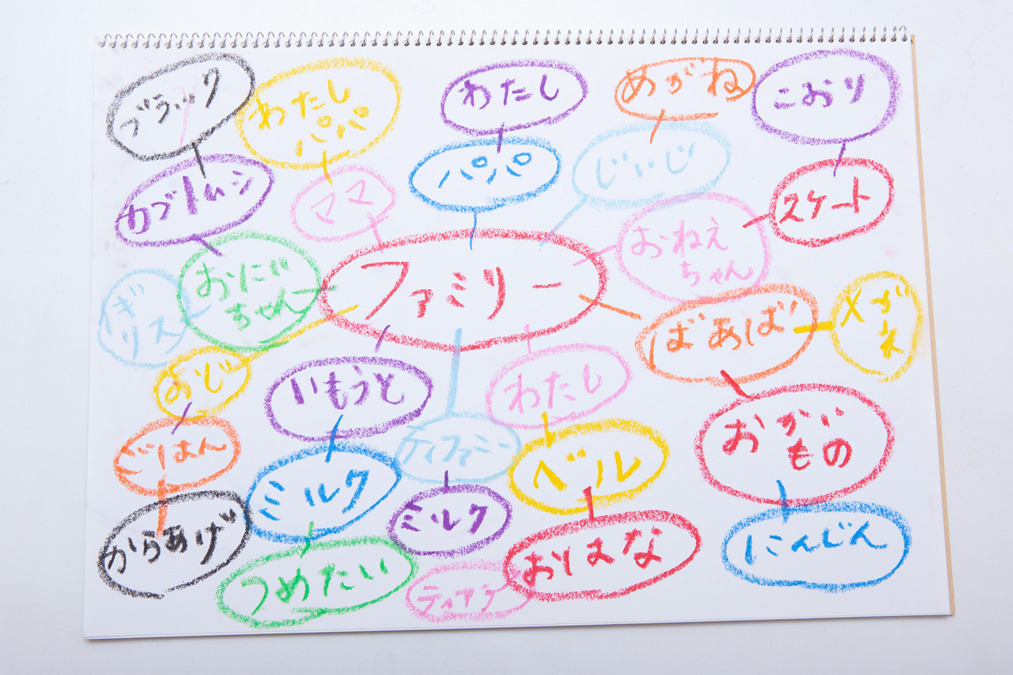 ブラック
わたし
パパ
わたし
めがね
こおり
カブトムシ
ママ
パパ
じいじ
おねえ
ちゃん
スケート
おにい
ちゃん
ファミリー
ばあば
メガ
ネ
おじ
いもうと
わたし
ごはん
ミルク
ティファニー
ベル
おかい
もの
からあげ
つめたい
ミルク
おはな
にんじん